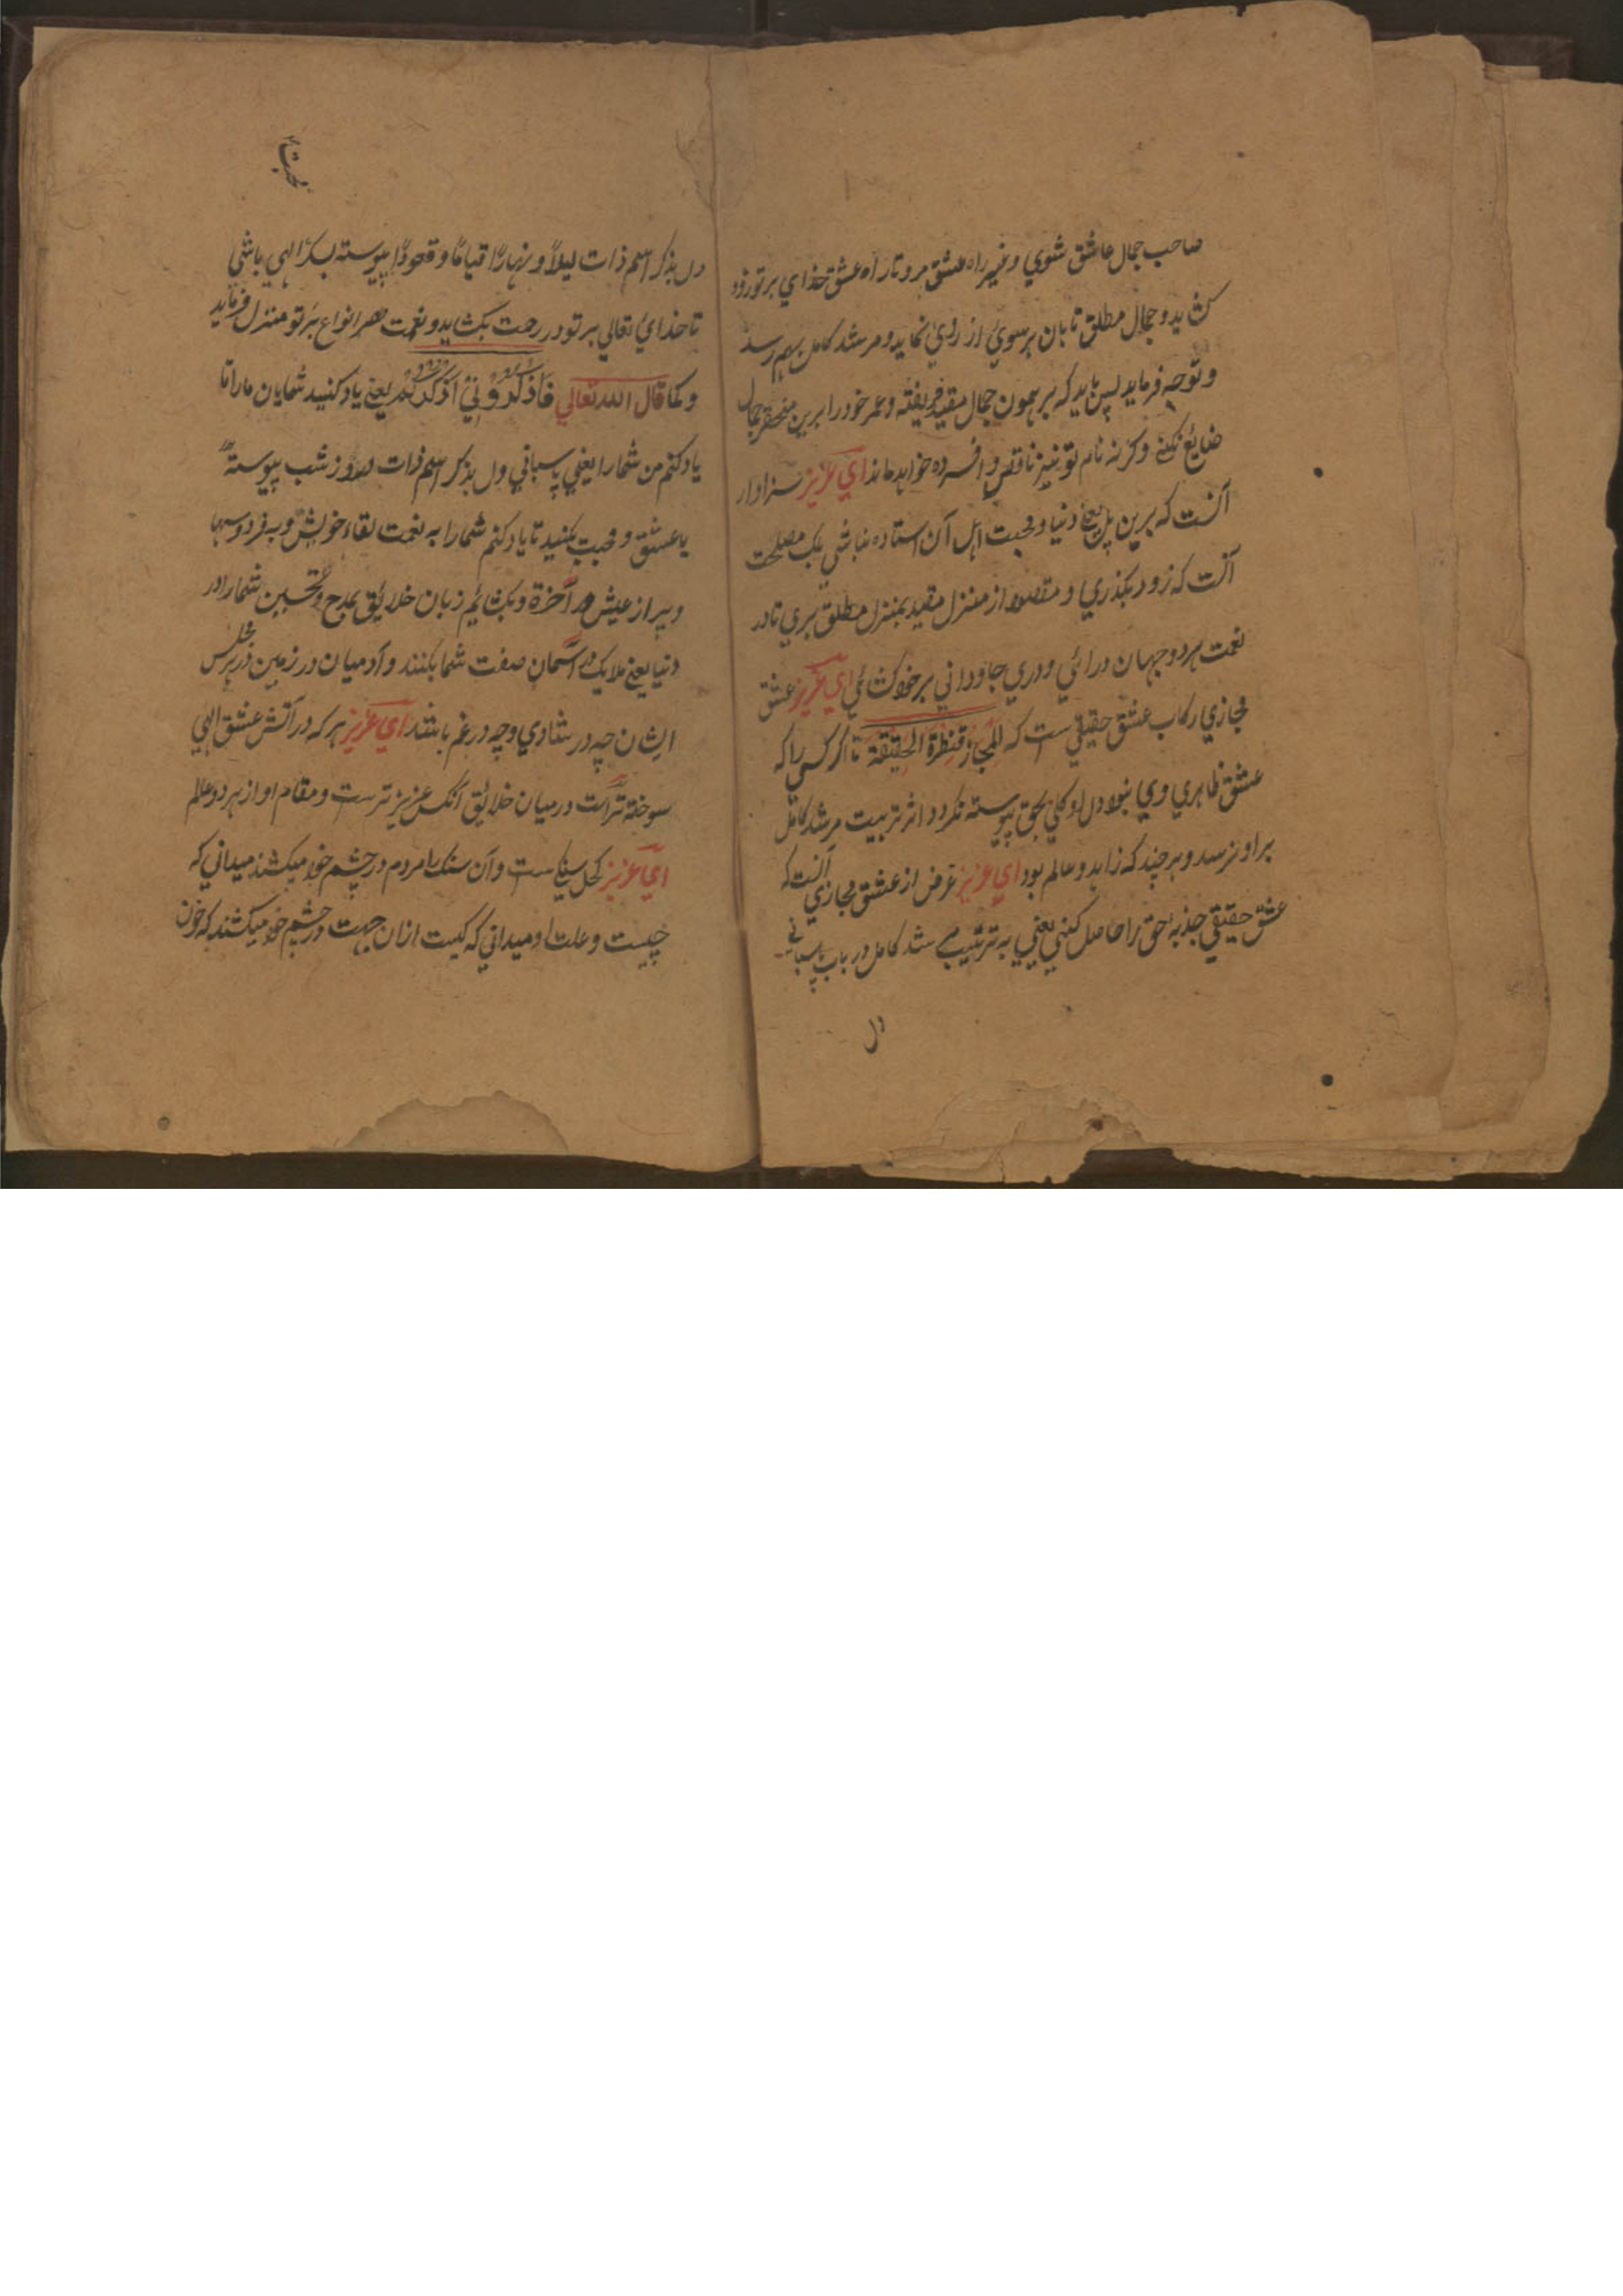 صاحب جمال عاشق شوي و غير راه عشق مرو تا راه عشق خداي بر تو زود
كشايد و جمال مطلق تابان بر سوي از روي نمايد و مرشد كامل بهم رسد
و توجه فرمايد پس بايد كه بر همون جمال مقيد فريفته و عمر خود را برين مختصر جمال
ضايع نكني وكرنه نام تو نيز ناقص و افسرده خواهد ماند اي عزيز سزاوار
آنست كه برين پل يعني دنيا و محبت اهل آن استاده نباشي بلك مصلحت
آنست كه زود بكذري و مقصود از منزل مقيد بمنزل مطلق بري تا در
نعمت هر دو جهان درائي و دري جاوداني بر خود كشائي اي عزيز عشق
مجازي ركاب عشق حقيقي ست كه المجاز قنطرة الحقيقة تا اكر كسي را كه
عشق ظاهري وي نبود دل او كلي بحق پيوسته نكردد اثر تربيت مرشد كامل
براو نرسد و هر چند كه زاهد و عالم بود اي عزيز غرض از عشق مجازي آنست كه
عشق حقيقي جذبهٔ حق را حاصل كني يعني به ترتيب مرشد كامل در باب پاسباني
دل
دل بذكر اسم ذات ليلاً و نهاراً قياماً و قعوداً پيوسته بسكر الهي باشي
تا خداي تعالي بر تو در رحمت بكشايد و نعمت هر انواع بر تو منزل فرمايد
و كما قال الله تعالي فَاذْكُرُوْنِيْ اَذْكُرْكُمْ يعني ياد كنيد شمايان ما را تا
ياد كنم من شما را يعني پاسباني دل بذكر اسم ذات روز شب پيوسته
يا عشق و محبت بكنيد تا ياد كنم شما را به نعمت لقاء خويش و به فردوسها
و پر از عيش آخرة و بكشائم زبان خلايق بمدح و تحسين شما را در
دنيا يعني ملايك در آسمان صفت شما بكنند و آدميان در زمين در هر مجلس
ايشان چه در شادي و چه در غم باشند اي عزيز هر كه در آتش عشق الهي
سوخته تر است در ميان خلايق آنكس عزيز ترست و مقام او از هر دو عالم
اي عزيز كحل سنك است و آن سنك را مردم در چشم خود ميكشند ميداني كه
چيست و علت او ميداني كه كيست ازان جهت در چشم خود ميكشند كه خون